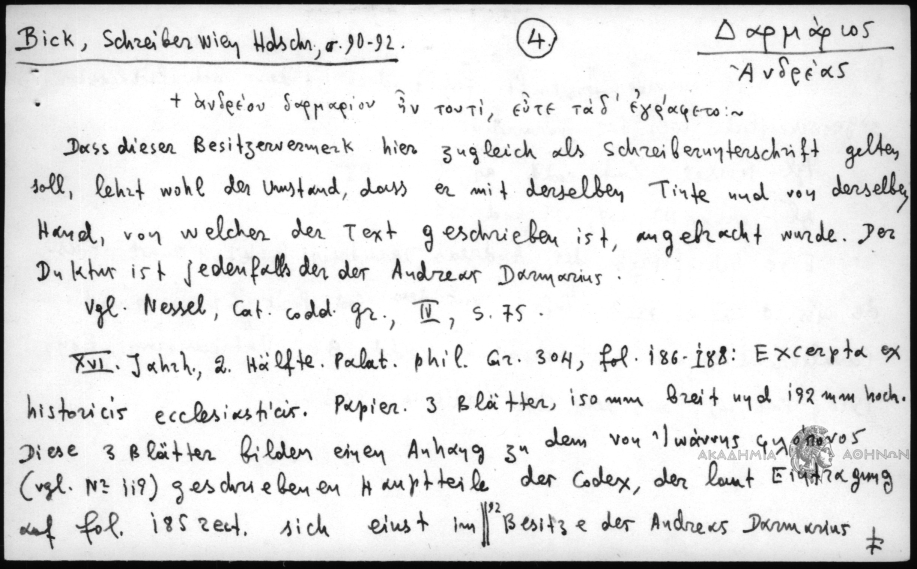 Bick, Schreiber Wien Hdschr., σ. 90-92.
4.
Δαρμάριος
Ἀνδρέας
+ ἀνδρέου δαρμαρίου ἦν τουτί, εὖτε τάδ' ἐγράφετο:~
Dass dieser Besitzervermerk hier zugleich als Schreiberunterschrift gelten
soll, lehrt wohl der Umstand, dass er mit derselben Tinte und von derselben
Hand, von welcher der Text geschrieben ist, angebracht wurde. Der
Duktus ist jedenfalls der der Andreas Darmarius.
Vgl. Nessel, Cat. codd. gr., IV, S. 75.
XVI. Jahrh., 2. Hälfte. Palat. phil. Gr. 304, fol. 186-188: Excerpta ex
historicis ecclesiasticis. Papier. 3 Blätter, 150 mm breit und 192 mm hoch.
Diese 3 Blätter bilden einen Anhang zu dem von Ἰωάννης
(vgl. Nº 119) geschriebenen Hauptteile der Codex, der laut Eintragung
auf fol. 185 rect. sich einst im ||92 Besitze der Andreas Darmarius
ΑΚΑΔΗΜΙΑ ΑΘΗΝΩΝ